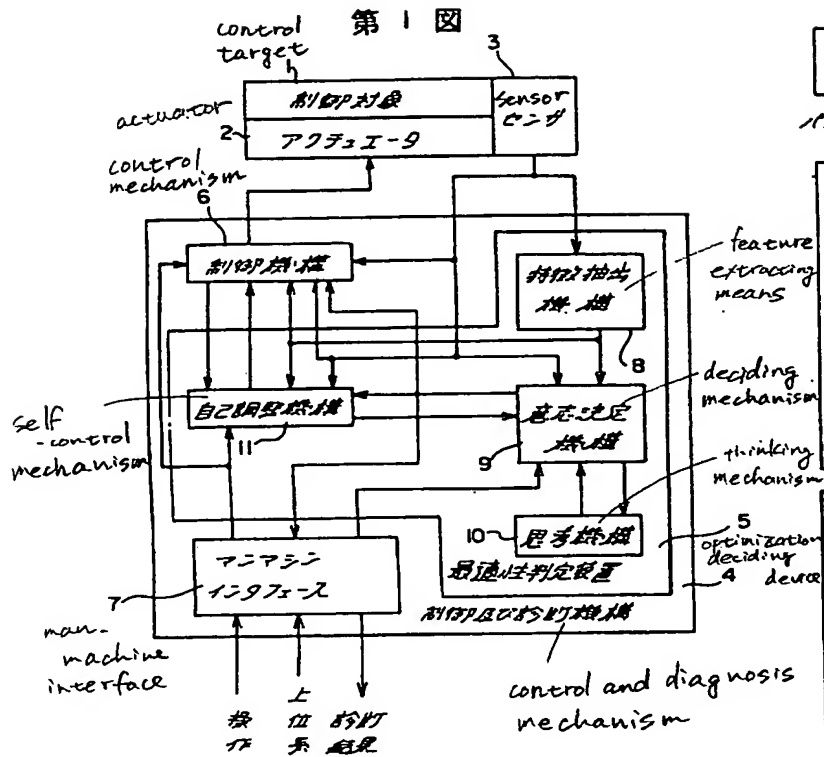 第1図
control
target
1
3
actuator
制御対象
sensor
センサ
2
アクチュエータ
control
mechanism
6
制御機構
特徴抽出
機構
feature
extracting
means
8
自己調整機構
11
self
-control
mechanism
意志決定
機構
9
deciding
mechanism
thinking
mechanism
10
思考機構
5
optimization
deciding
device
4
最適性判定装置
マンマシン
インタフェース
7
man-
machine
interface
制御及び診断機構
control and diagnosis
mechanism
操作
上位系
診断結果